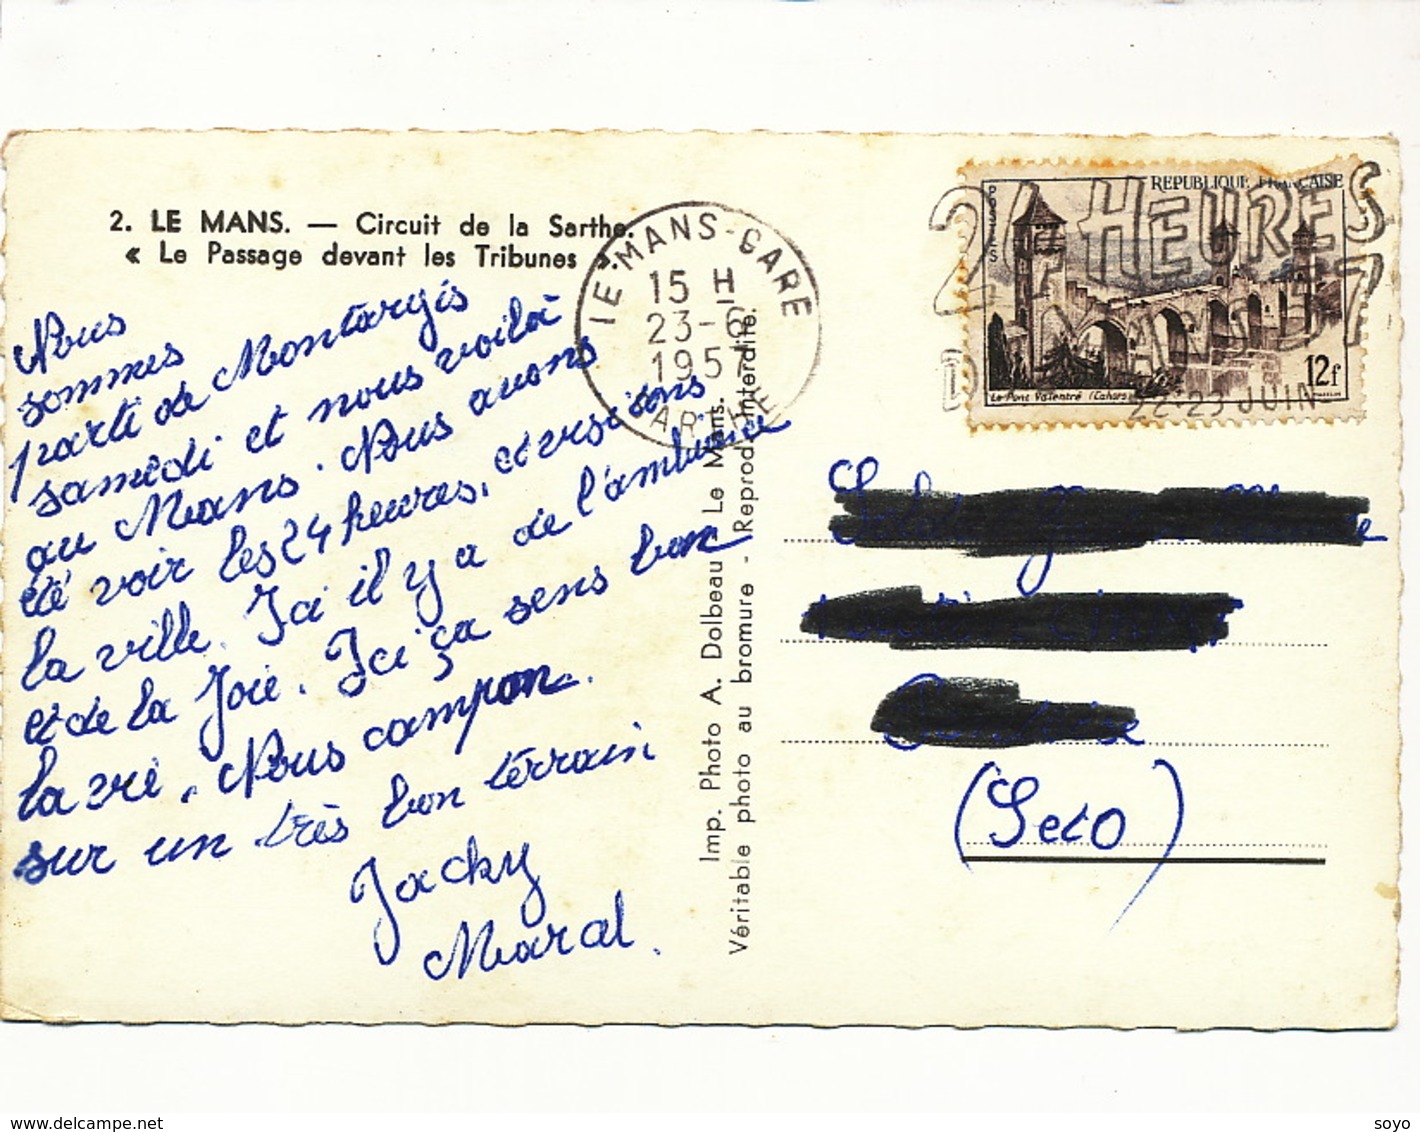 2. LE MANS. — Circuit de la Sarthe.
« Le Passage devant les Tribunes ».
Nous
sommes
parti de Montargis
samedi et nous voilà
au Mans. Nous avons
été voir les 24 heures, et visitons
la ville. Ici il y a de l'ambiance
et de la Joie. Ici ça sens bon
la vie. Nous campon.
sur un très bon terrain
Jacky
Maral.
LE MANS-GARE
15 H
23-6
1957
SARTHE
Imp. Photo A. Dolbeau Le Mans.
Véritable photo au bromure - Reprod. Interdite.
24 HEURES
DU MANS 57
22-23 JUIN
REPUBLIQUE FRANÇAISE
POSTES
12f
Le Pont Valentré (Cahors)
(Seto)
www.delcampe.net
soyo